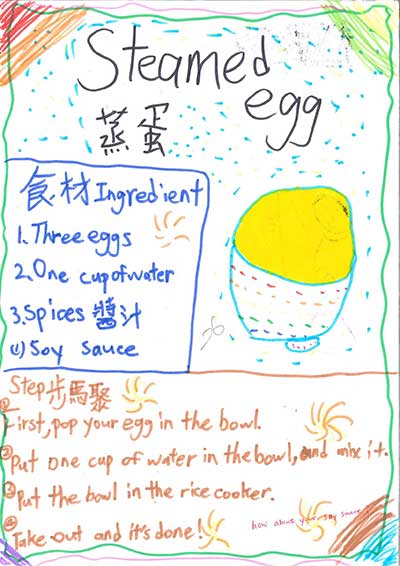 Steamed
egg
蒸蛋
食材 Ingredient
1. Three eggs
2. One cup of water
3. Spices 醬汁
(4) Soy sauce
Step 步驟
① First, pop your egg in the bowl.
② Put one cup of water in the bowl, and mix it.
③ Put the bowl in the rice cooker.
④ Take out and it's done!
how about your soy sauce